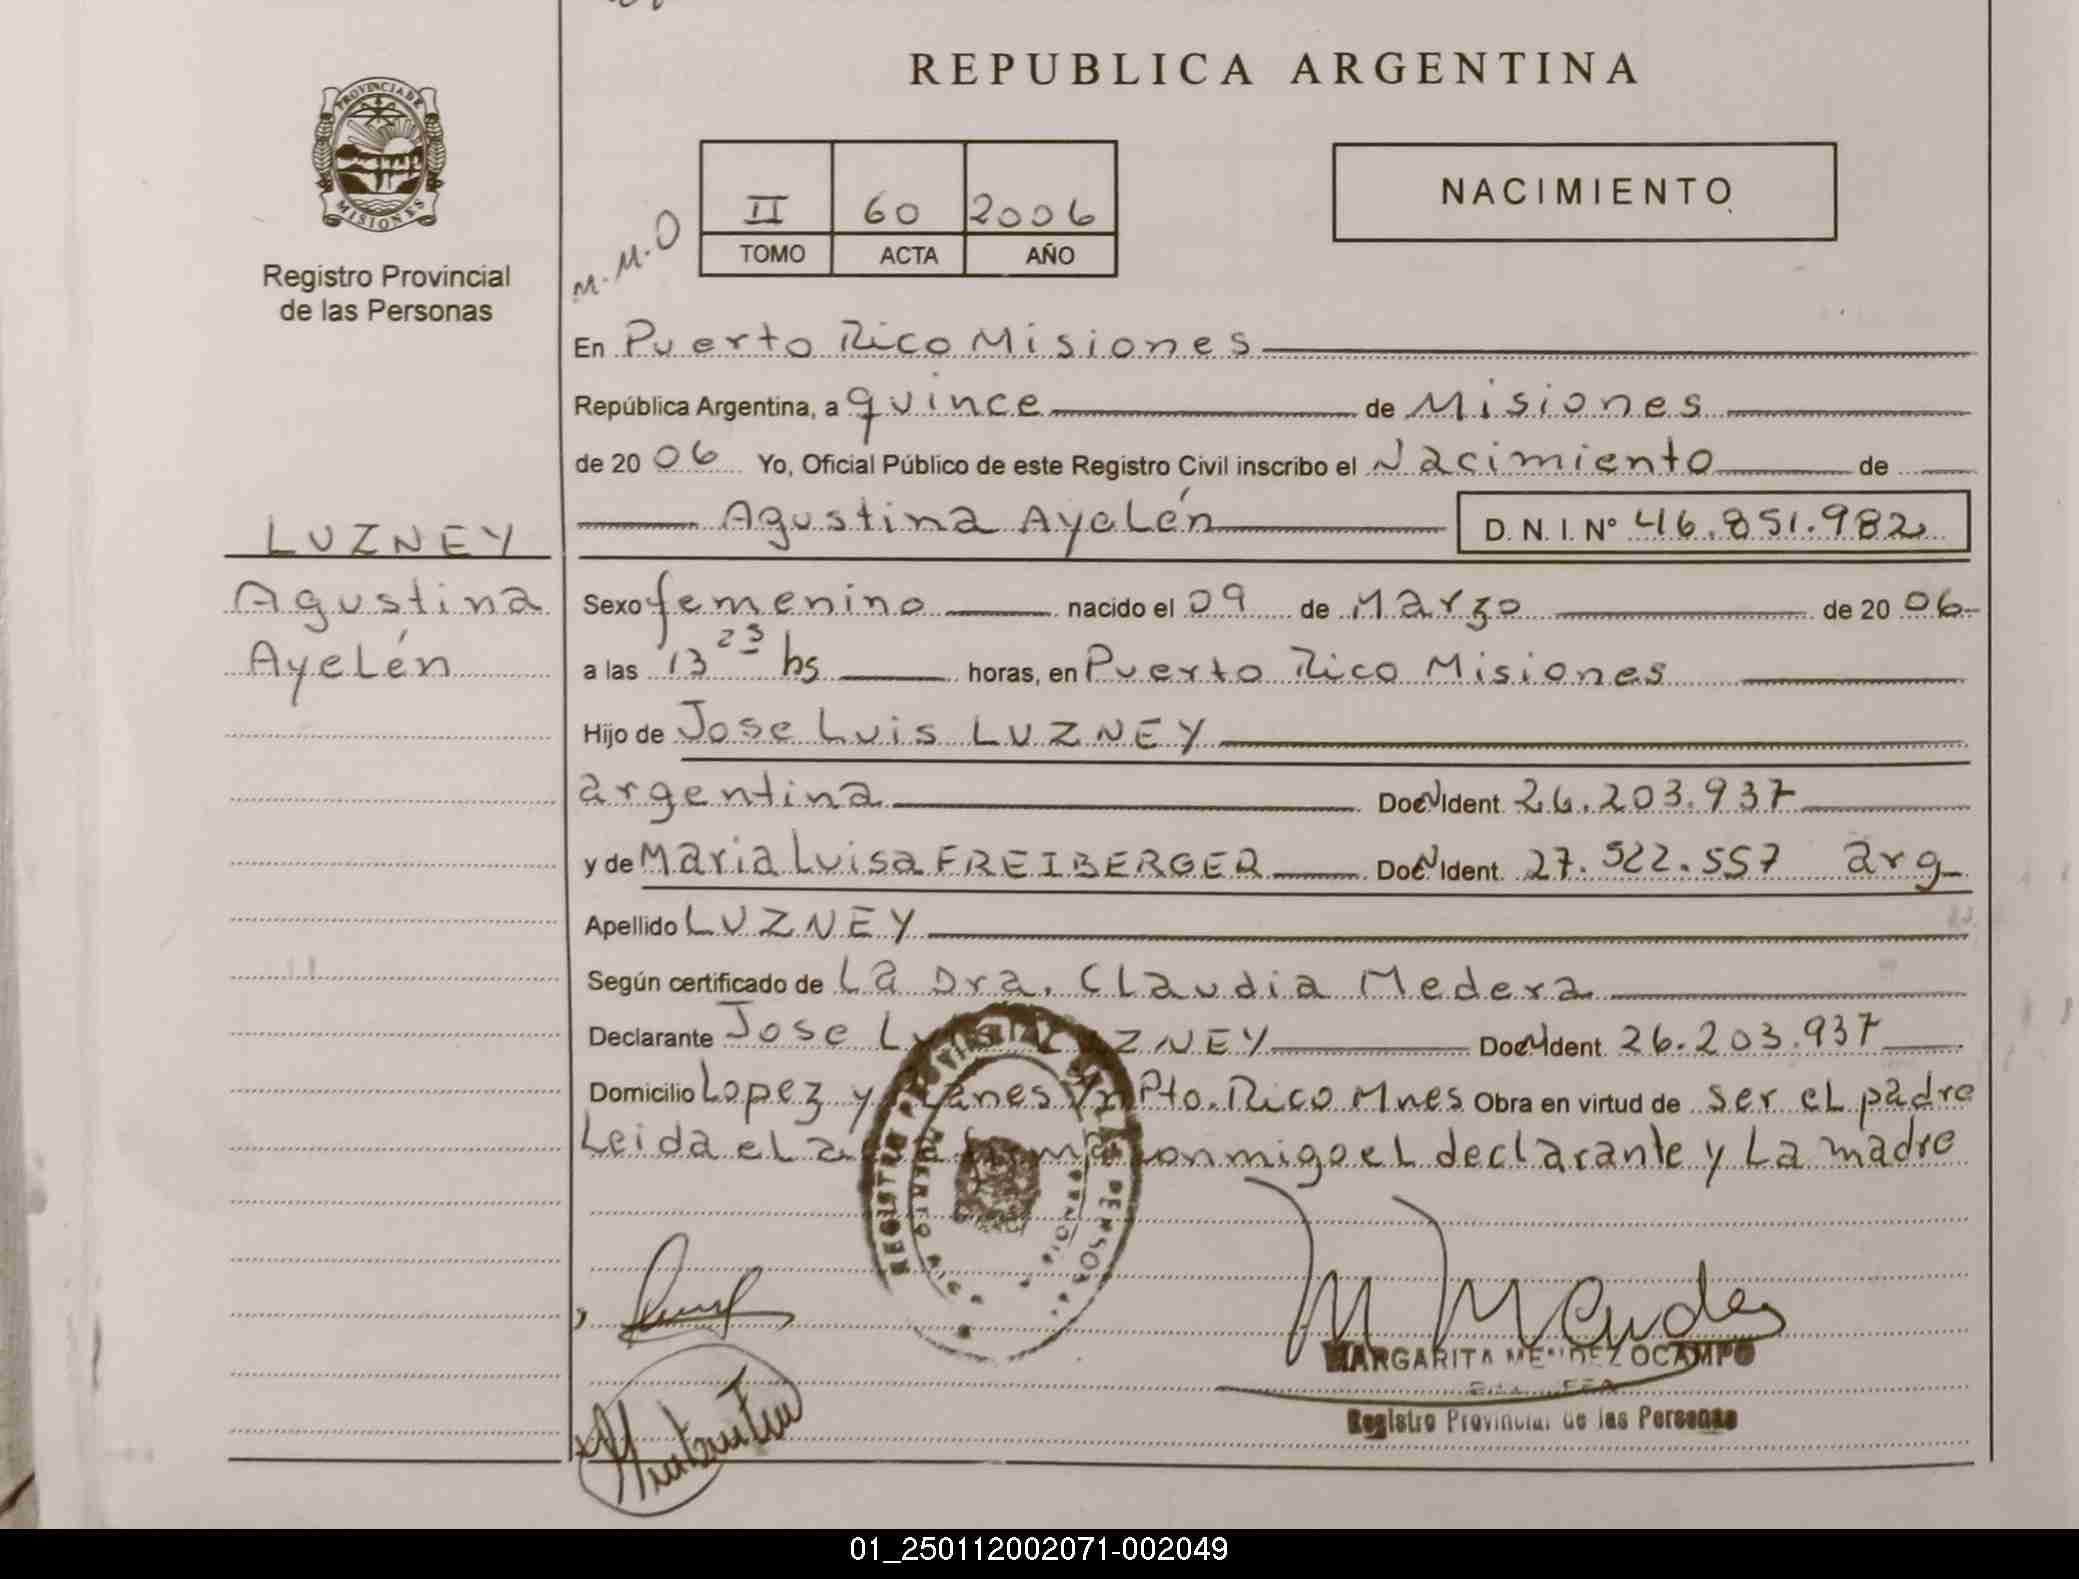 REPUBLICA ARGENTINA
PROVINCIA DE
MISIONES
Registro Provincial
de las Personas
II 60 2006
TOMO ACTA AÑO
NACIMIENTO
M.M.O
En Puerto Rico Misiones
República Argentina, a quince de Misiones
de 20 06 Yo, Oficial Público de este Registro Civil inscribo el Nacimiento de
Agustina Ayelén D. N. I. Nº 46.851.982
LUZNEY
Agustina
Ayelén
Sexo femenino nacido el 09 de Marzo de 20 06-
a las 13 25 hs horas, en Puerto Rico Misiones
Hijo de Jose Luis LUZNEY
argentina Doc N Ident. 26.203.937
y de Maria Luisa FREIBERGER Doc N Ident. 27.522.557 arg
Apellido LUZNEY
Según certificado de La Dra. Claudia Medera
Declarante Jose Luis LUZNEY Doc N Ident. 26.203.937
Domicilio Lopez y Pto. Rico Mnes Obra en virtud de ser el padre
Leida el acta firma conmigo el declarante y La madre
M Mendez
MARGARITA MENDEZ OCAMPO
Registro Provincial de las Personas
01_250112002071-002049